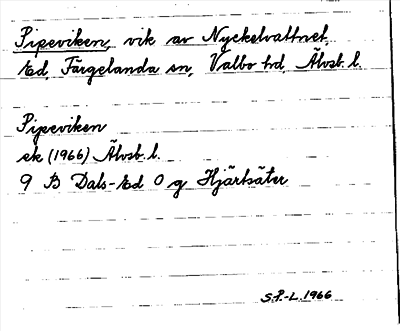 Pipeviken, vik av Nyckelvattnet,
Ed, Färgelanda sn, Valbo hd, Älvsb. l.
Pipeviken
ek (1966) Älvsb. l.
9 B Dals-Ed O g Hjärtsäter
S.P.-L. 1966